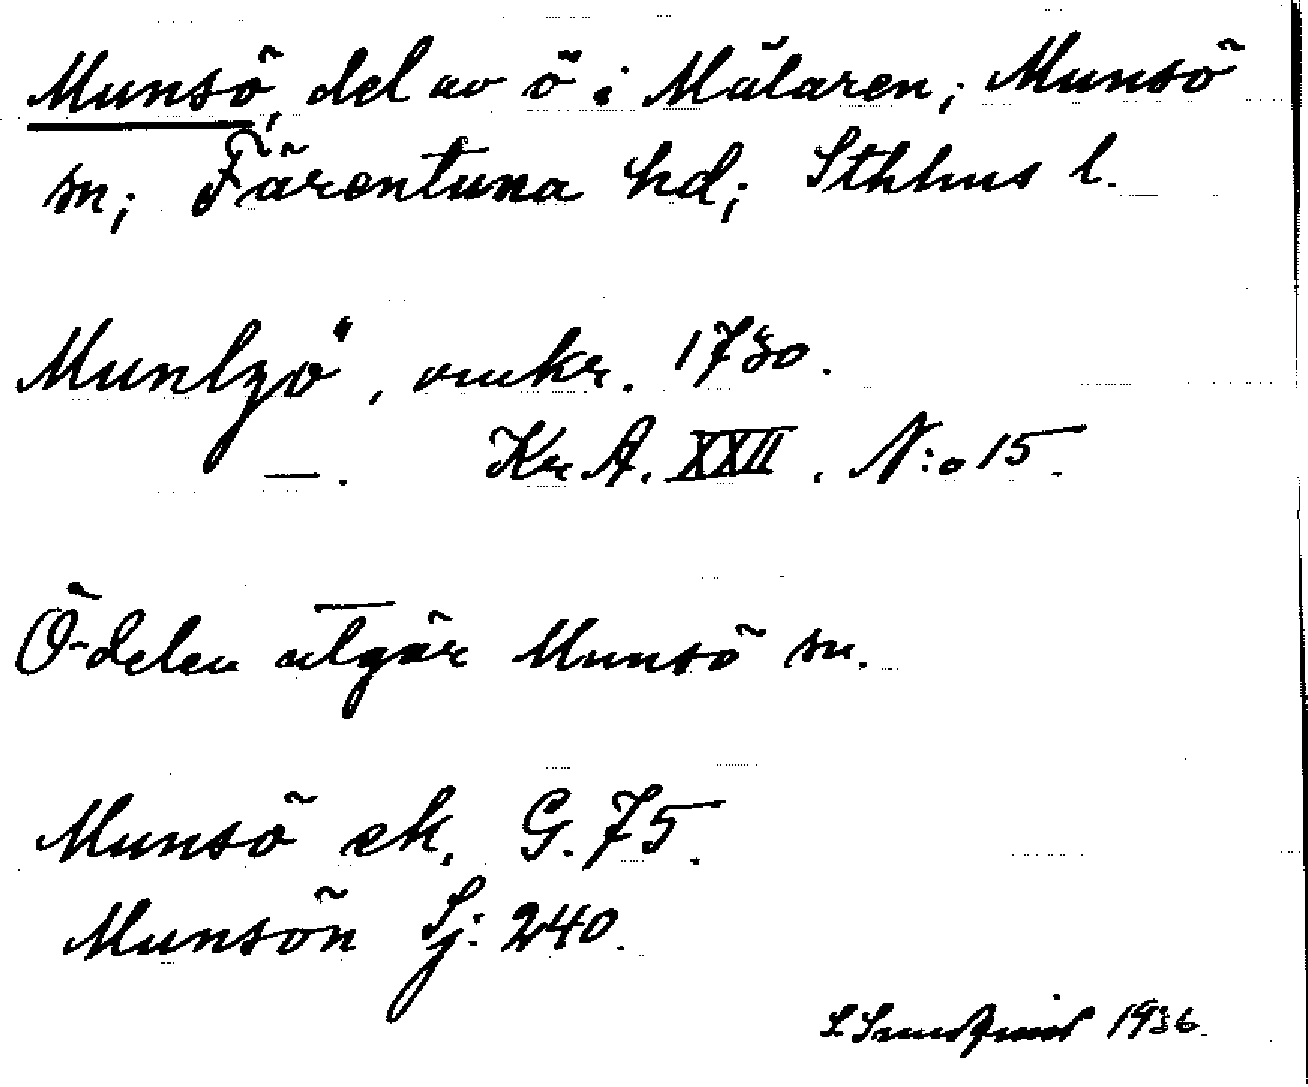 Munsö, del av ö i Mälaren; Munsö
sn; Färentuna hd; Sthlms l.
Muntzö, omkr. 1730.
—. Kr A. XXII. N:o 15.
Ö-delen utgör Munsö sn.
Munsö ek. G. 75.
Munsön Sj: 240.
1936.